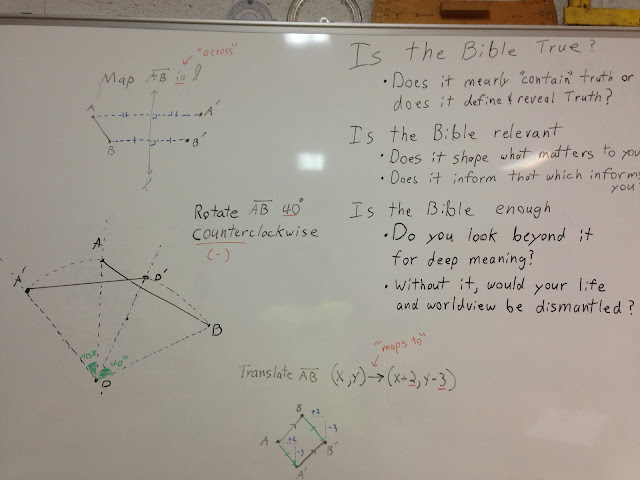 "across"
Map AB in l
A
A'
B
B'
l
Rotate AB 40°
counterclockwise
(-)
A
A'
B'
B
40°
40°
O
Translate AB (X,Y)→(X+2,Y-3)
"maps to"
B
+2
-3
A
+2
-3
B'
A'
Is the Bible True?
• Does it mearly "contain" truth or
does it define & reveal Truth?
Is the Bible relevant
• Does it shape what matters to you
• Does it inform that which informs
you?
Is the Bible enough
• Do you look beyond it
for deep meaning?
• Without it, would your life
and worldview be dismantled?